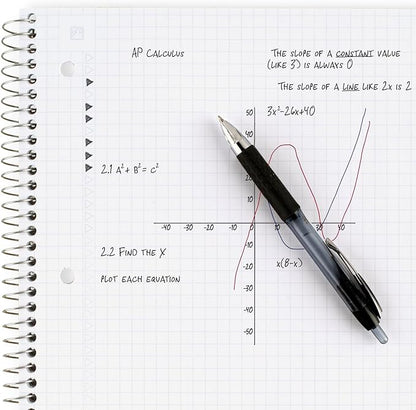 AP CALCULUS
THE SLOPE OF A CONSTANT VALUE
(LIKE 3) IS ALWAYS 0
THE SLOPE OF A LINE LIKE 2x IS 2
3x²-26x+40
50
40
20
10
2.1 A² + B² = C²
-40 -30 -20 -10 10 30 40
-10
-20
-30
-40
-50
2.2 FIND THE X
x(8-x)
PLOT EACH EQUATION